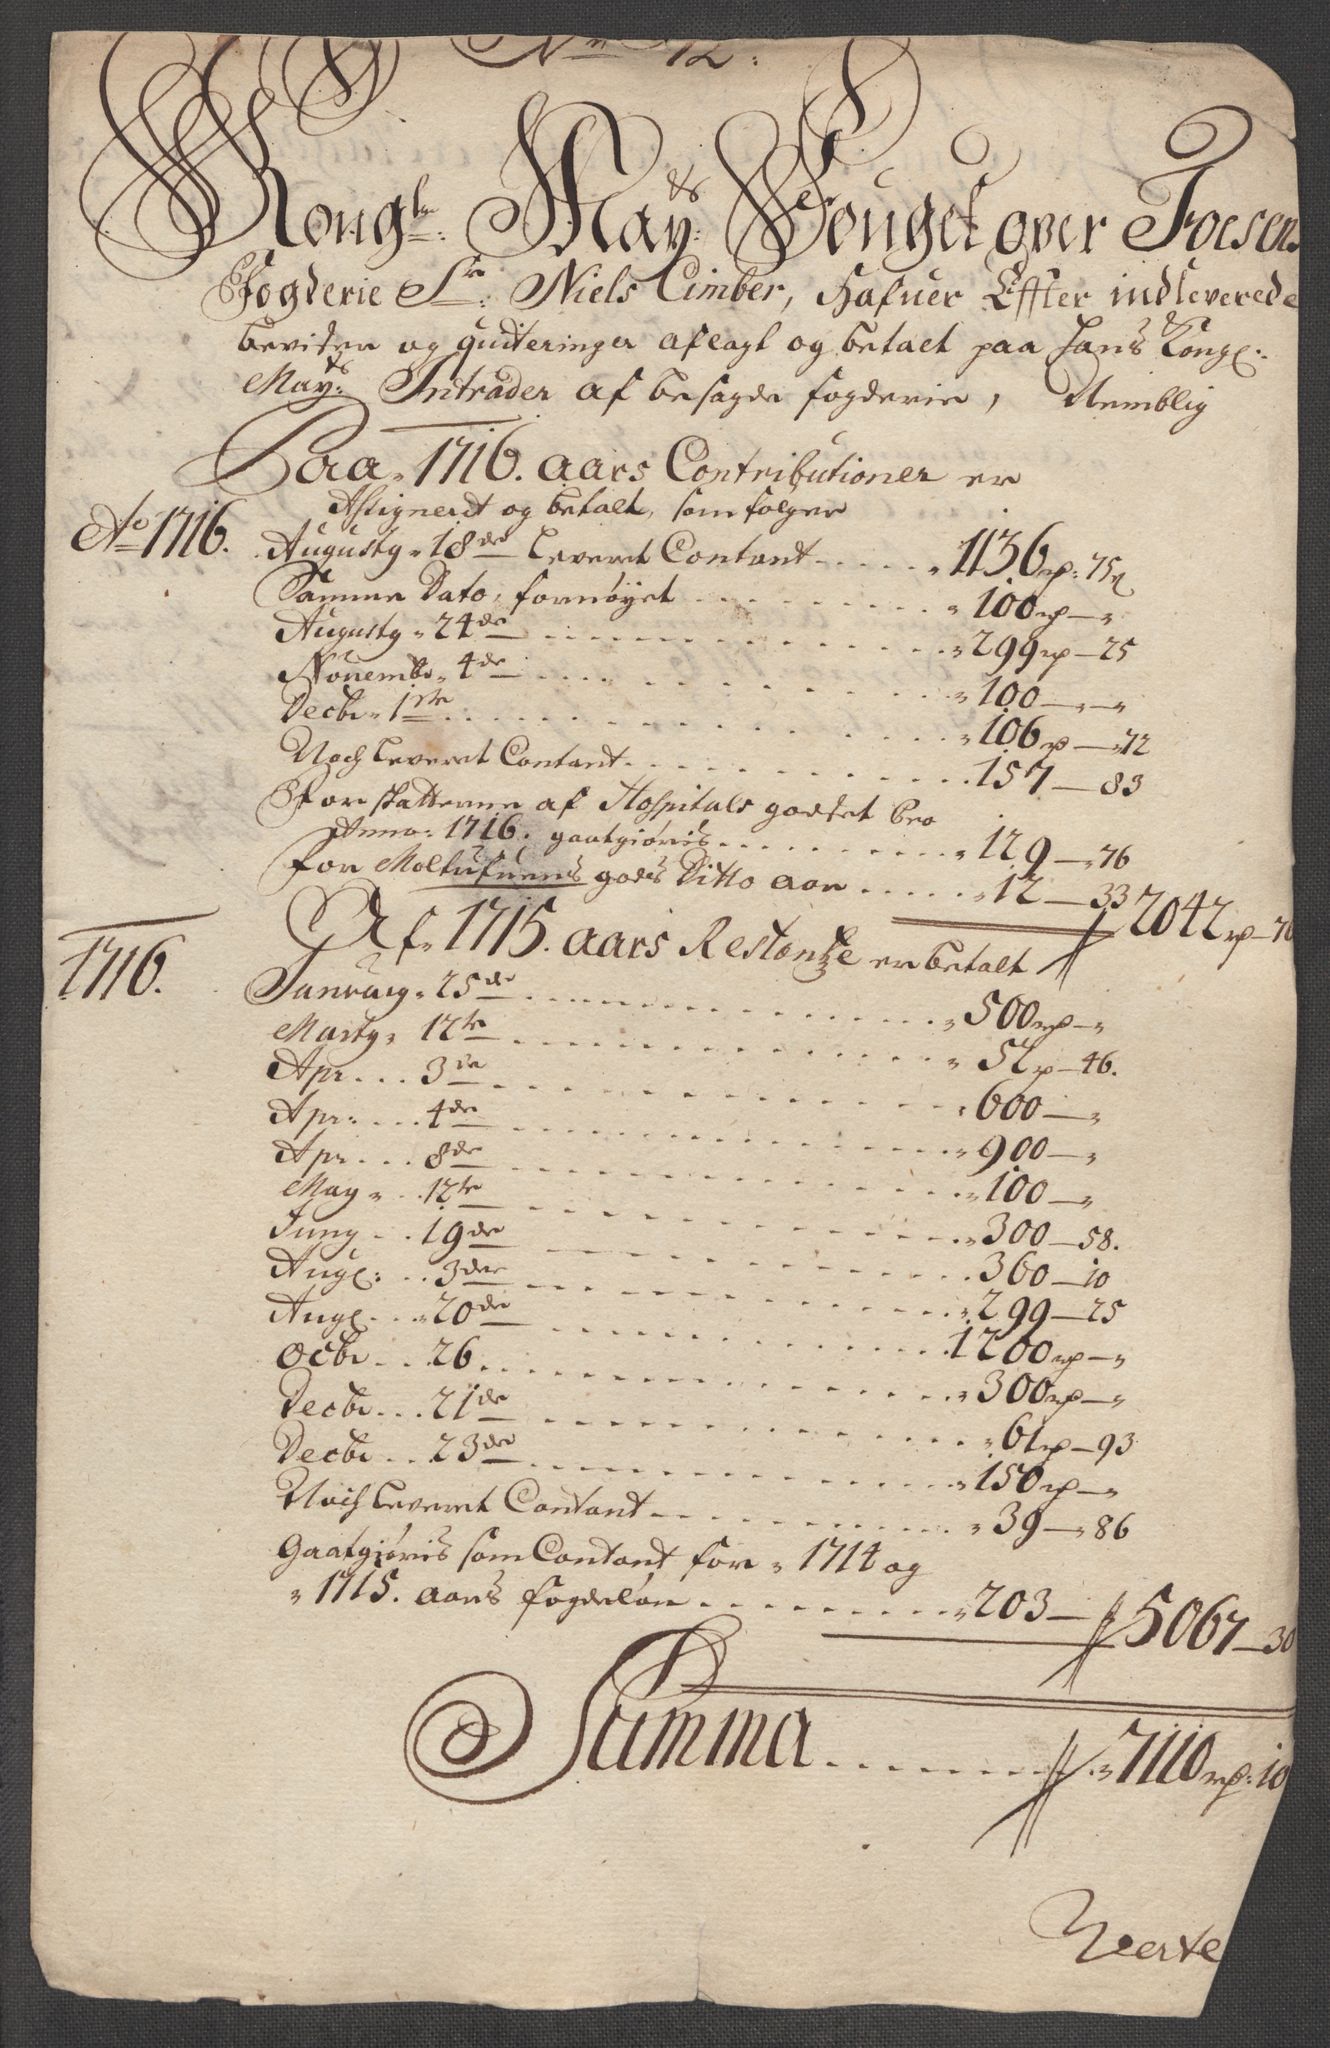 No 12:
Kongl: May:ts Fouget over Foesens
Fogderie Sr: Niels Cimber, Hafuer Effter indleverede
beviser og quiteringer aflagt og betalt paa Hans Kongl:
May:ts Intrader af besagde fogderie, Nemblig
Paa 1716. aars Contributioner er
Assigneret og betalt, som følger
Ao 1716. Augusty 18de Leveret Contant . . . . . 1136 rp: 75 s
Samme Dato, fornøyet . . . . . 100 rp — "
Augusty 24de . . . . . 299 rp — 25
Novembr 4de . . . . . 100 — "
Decbr 1ste . . . . . 106 rp — 72
Noch Leveret Contant . . . . . 157 — 83
For skatterne af Hospitals godset pro
Anno: 1716. godtgiøris . . . . . 129 — 76
for Molthufuens gods Ditto aar . . . . . 12 — 33 // 2042 rp — 76
1716. Af 1715. aars Restantze er betalt
Januarij 25de . . . . . 500 rp — "
Marty 12te . . . . . 52 rp — 46.
Apr . . . 3de . . . . . 600 — "
Apr: . . . 4de . . . . . 900 — "
Apr . . . 8de . . . . . 100 — "
May . . 12te . . . . . 300 — 58.
Juny . . 19de . . . . . 360 — 10
Aug: . . 3die . . . . . 299 — 25
Aug . . . 20de . . . . . 1200 rp — "
Octbr . . 26 . . . . . 300 rp — "
Decbr . . 21de . . . . . 61 rp — 93
Decbr . . 23de . . . . . 150 rp — "
Noch Leveret Contant . . . . . 39 — 86
Godtgiøris som Contant for 1714 og
1715. aars fogdeløn . . . . . 203 — // 5067 — 30
Summa . . . . . // 7110 rp: 10
Verte